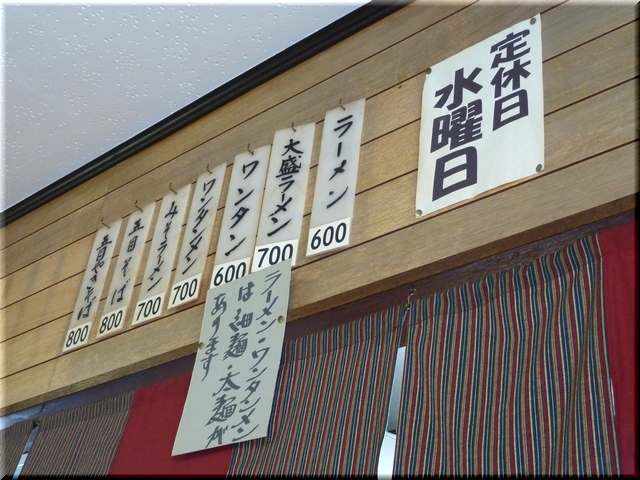 定休日
水曜日
ラーメン
600
大盛ラーメン
700
ワンタン
600
ワンタンメン
700
みそラーメン
700
五目そば
800
五目やきそば
800
ラーメン・ワンタンメン
は細麺・太麺が
あります